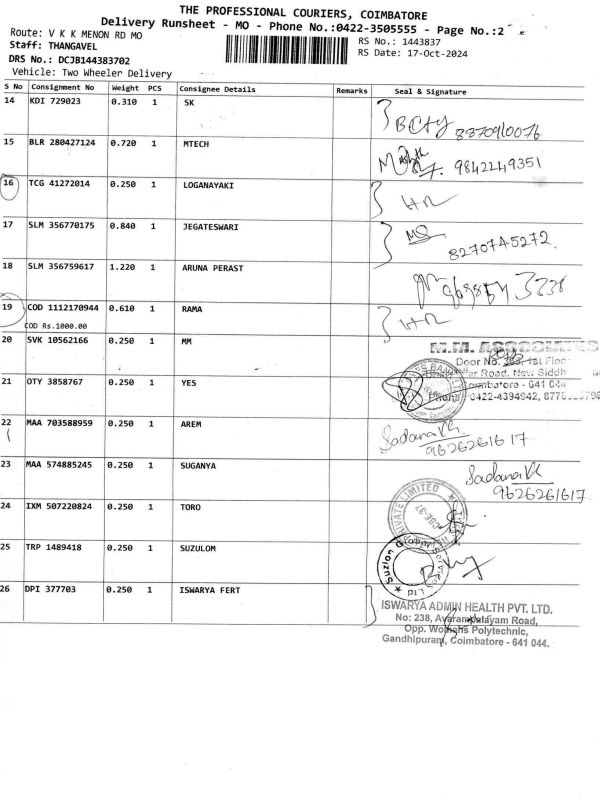 THE PROFESSIONAL COURIERS, COIMBATORE
Delivery Runsheet - MO - Phone No.:0422-3505555 - Page No.:2
Route: V K K MENON RD MO
RS No.: 1443837
Staff: THANGAVEL
RS Date: 17-Oct-2024
DRS No.: DCJB144383702
Vehicle: Two Wheeler Delivery
S No Consignment No Weight PCS Consignee Details Remarks Seal & Signature
14 KDI 729023 0.310 1 SK
8870910076
15 BLR 280427124 0.720 1 MTECH
9842249351
16 TCG 41272014 0.250 1 LOGANAYAKI
17 SLM 356770175 0.840 1 JEGATESWARI
8270745272
18 SLM 356759617 1.220 1 ARUNA PERAST
19 COD 1112170944 0.610 1 RAMA
COD Rs.1000.00
20 SVK 10562166 0.250 1 MM
M.M. ASSOCIATES
Door No. 1st Floor
Road, New Siddh
Coimbatore - 641 044
Phone 0422-4394942,
21 OTY 3858767 0.250 1 YES
22 MAA 703588959 0.250 1 AREM
Sadana
9626261617
23 MAA 574885245 0.250 1 SUGANYA
Sadana
9626261617
24 IXM 507220824 0.250 1 TORO
PRIVATE LIMITED
CBE-37
25 TRP 1489418 0.250 1 SUZULOM
Suzlon Global Services Ltd
26 DPI 377703 0.250 1 ISWARYA FERT
ISWARYA ADMIN HEALTH PVT. LTD.
No: 238, Avarampalayam Road,
Opp. Womens Polytechnic,
Gandhipuram, Coimbatore - 641 044.